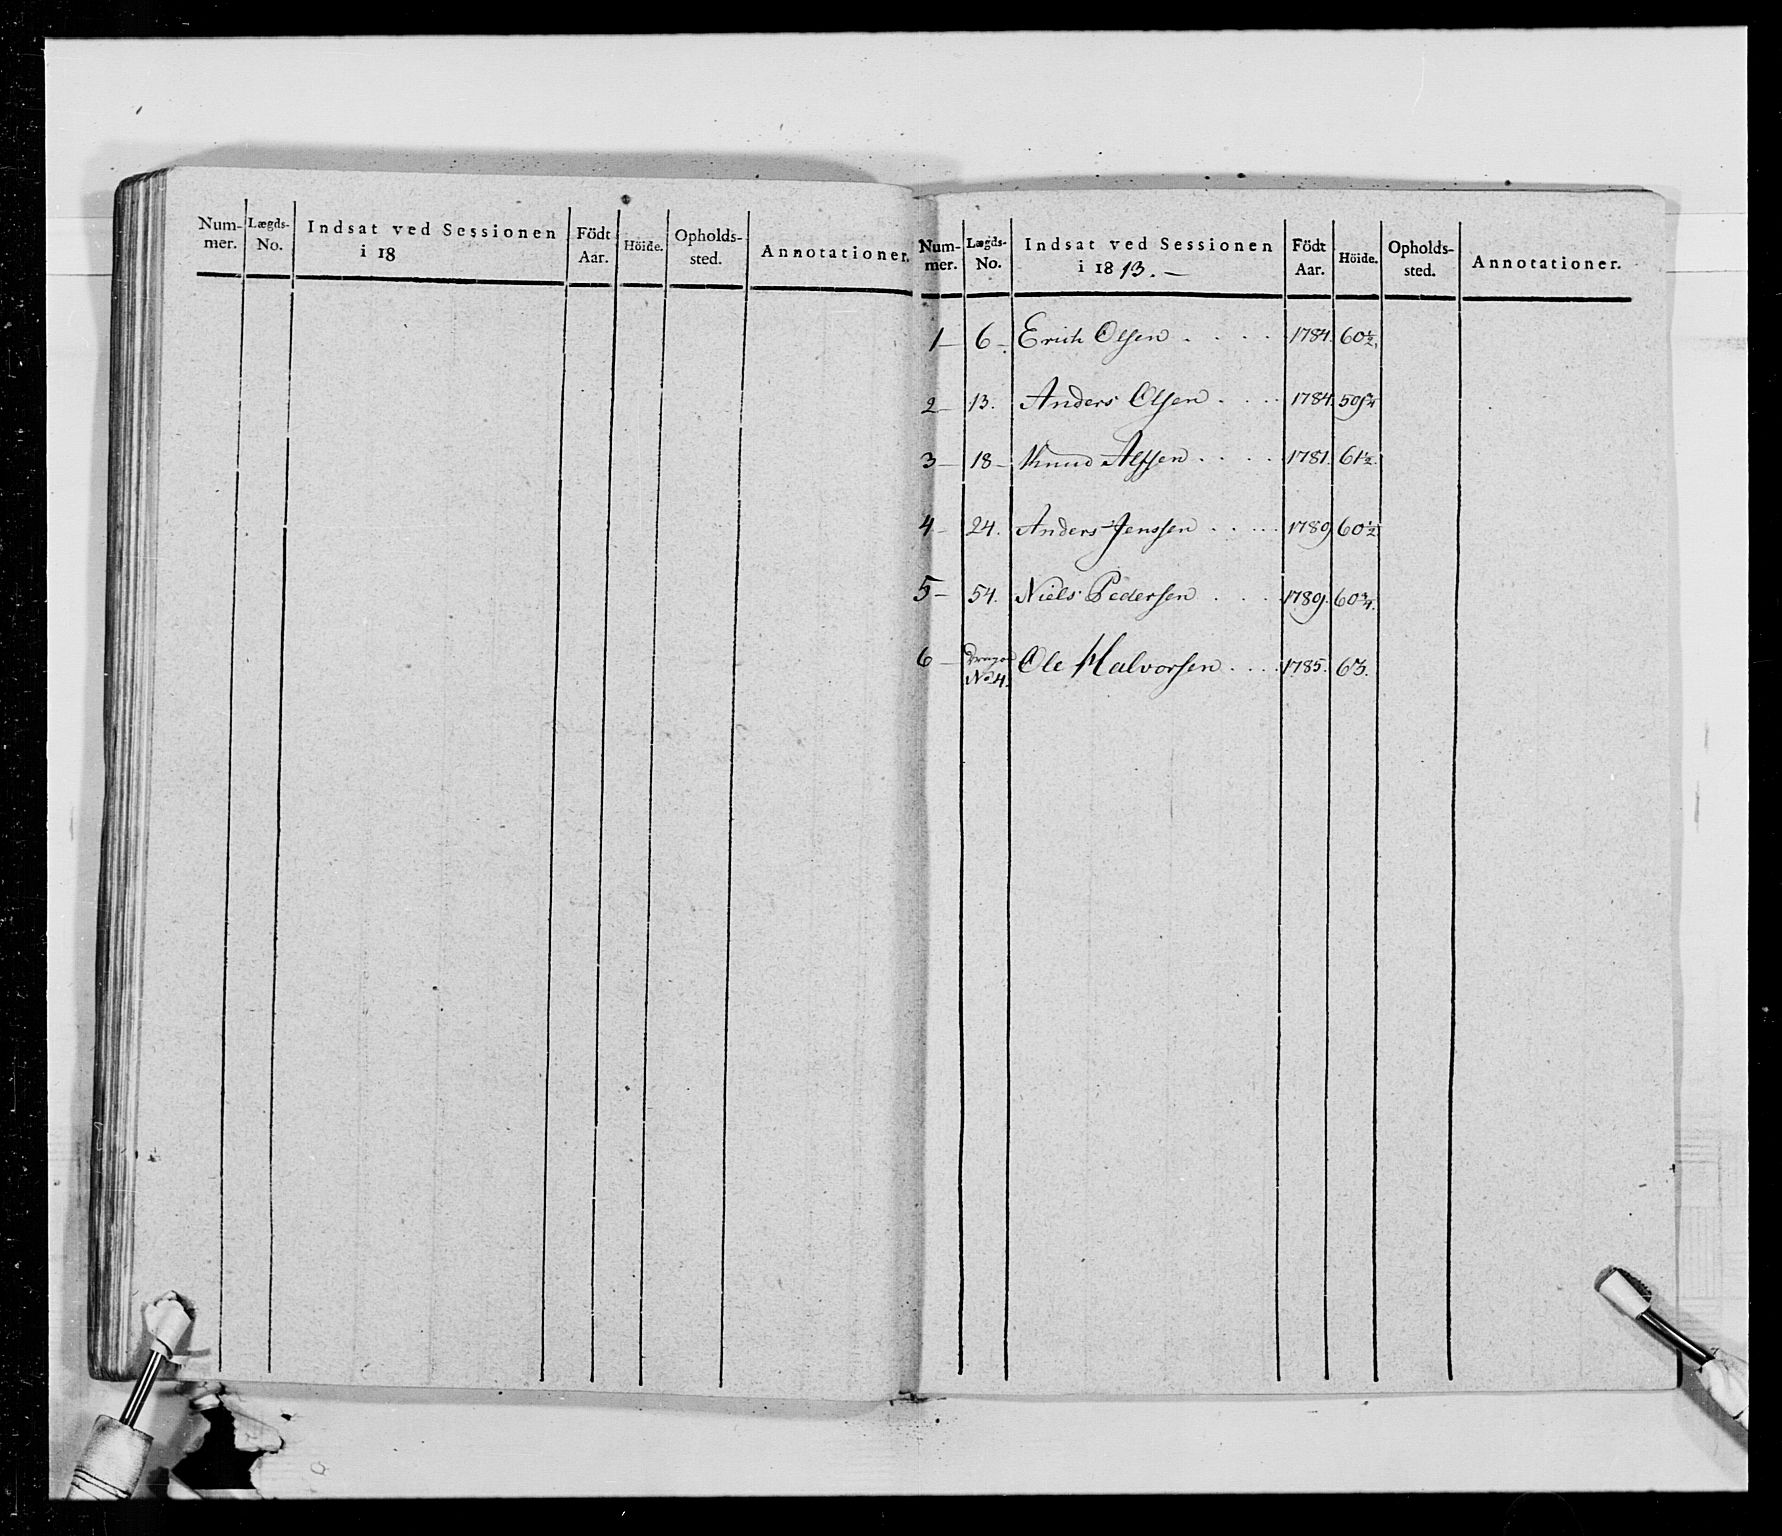 Num-mer. Lægds-No. Indsat ved Sessionen i 18 Födt Aar. Höide. Opholds-sted. Annotationer.
Num-mer. Lægds-No. Indsat ved Sessionen i 1813. — Födt Aar. Höide. Opholds-sted. Annotationer.
1 — 6 — Erich Olsen . . . . 1784. 60½.
2 — 13. Anders Olsen . . . . 1784. 59¾
3 — 18 — Knud . . . . 1781. 61½.
4 — 24. Anders Jenssen . . . . 1789 60½
5 — 54. Niels Pedersen . . . 1789. 60¾.
6 — No 4. Ole Halvorsen . . . . 1785. 63.